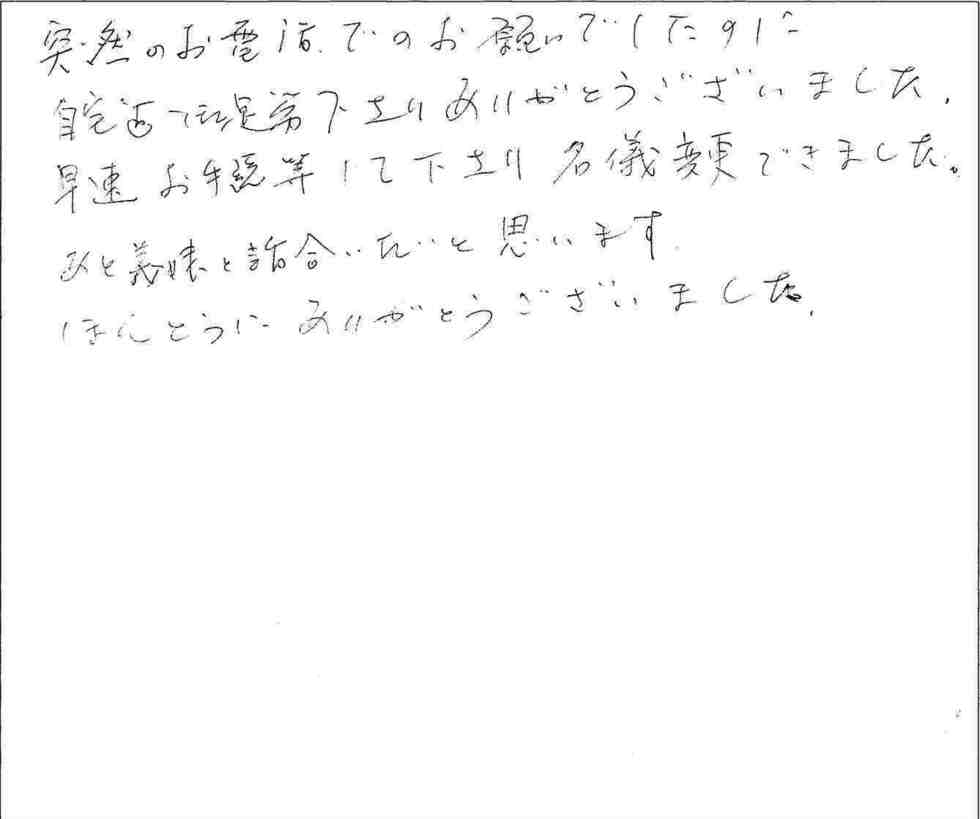 突然のお電話でのお願いでしたのに
自宅迄 下さり ありがとうございました。
早速 お手続等して下さり 名儀変更できました。
義妹と話合いたいと思います。
ほんとうに ありがとうございました。